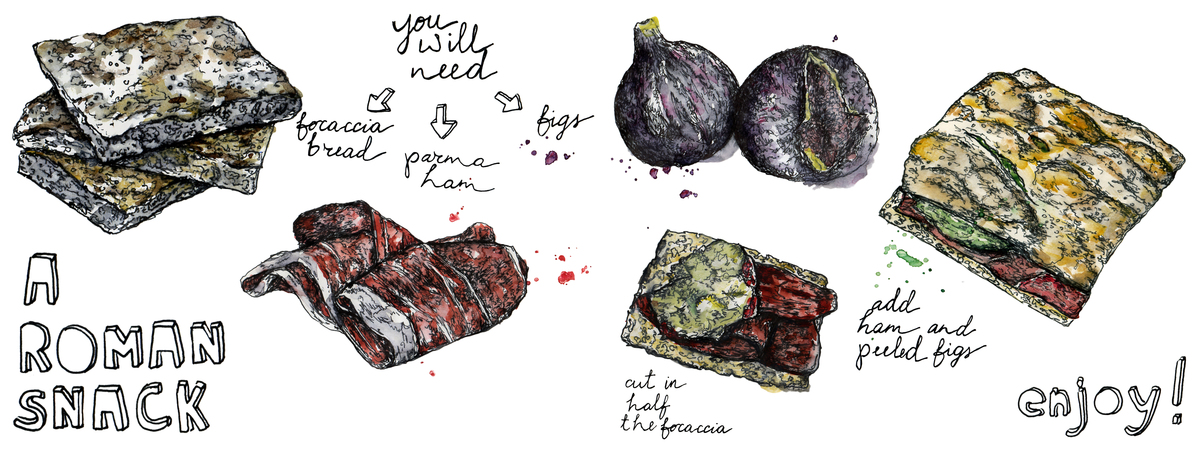 you
will
need
focaccia
bread
parma
ham
figs
A
ROMAN
SNACK
cut in
half
the focaccia
add
ham and
peeled figs
enjoy!